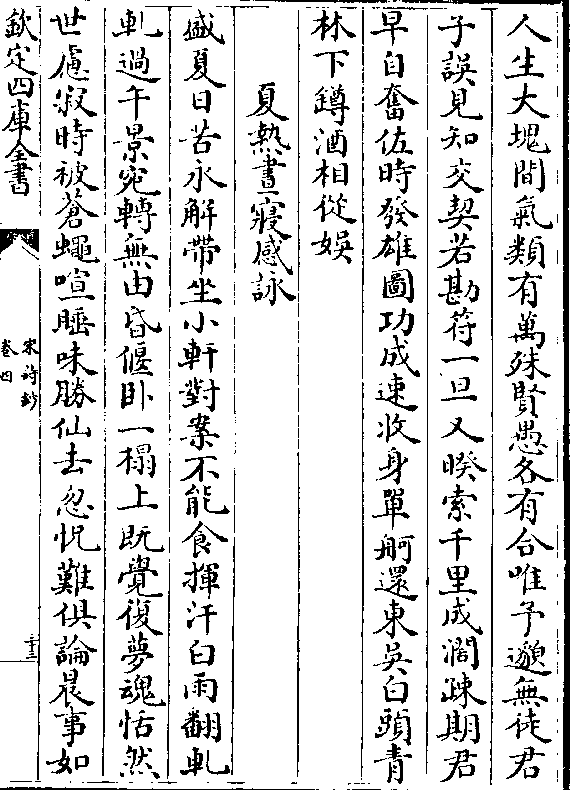 人生大塊間氣類有萬殊賢愚各有合唯予邈無徒君
子誤見知交契若勘符一旦又睽索千里成濶疎期君
早自奮佐時發雄圖功成速收身單舸還東吳白頭青
林下罇酒相從娛
夏熱晝寢感詠
盛夏日苦永解帶坐小軒對案不能食揮汗白雨翻軋
軋過午景宛轉無由昏偃卧一榻上既覺復夢魂恬然
世慮寂時被蒼蠅喧睡味勝仙去忽怳難俱論晨事如
欽定四庫全書
宋詩鈔
卷四
三十三